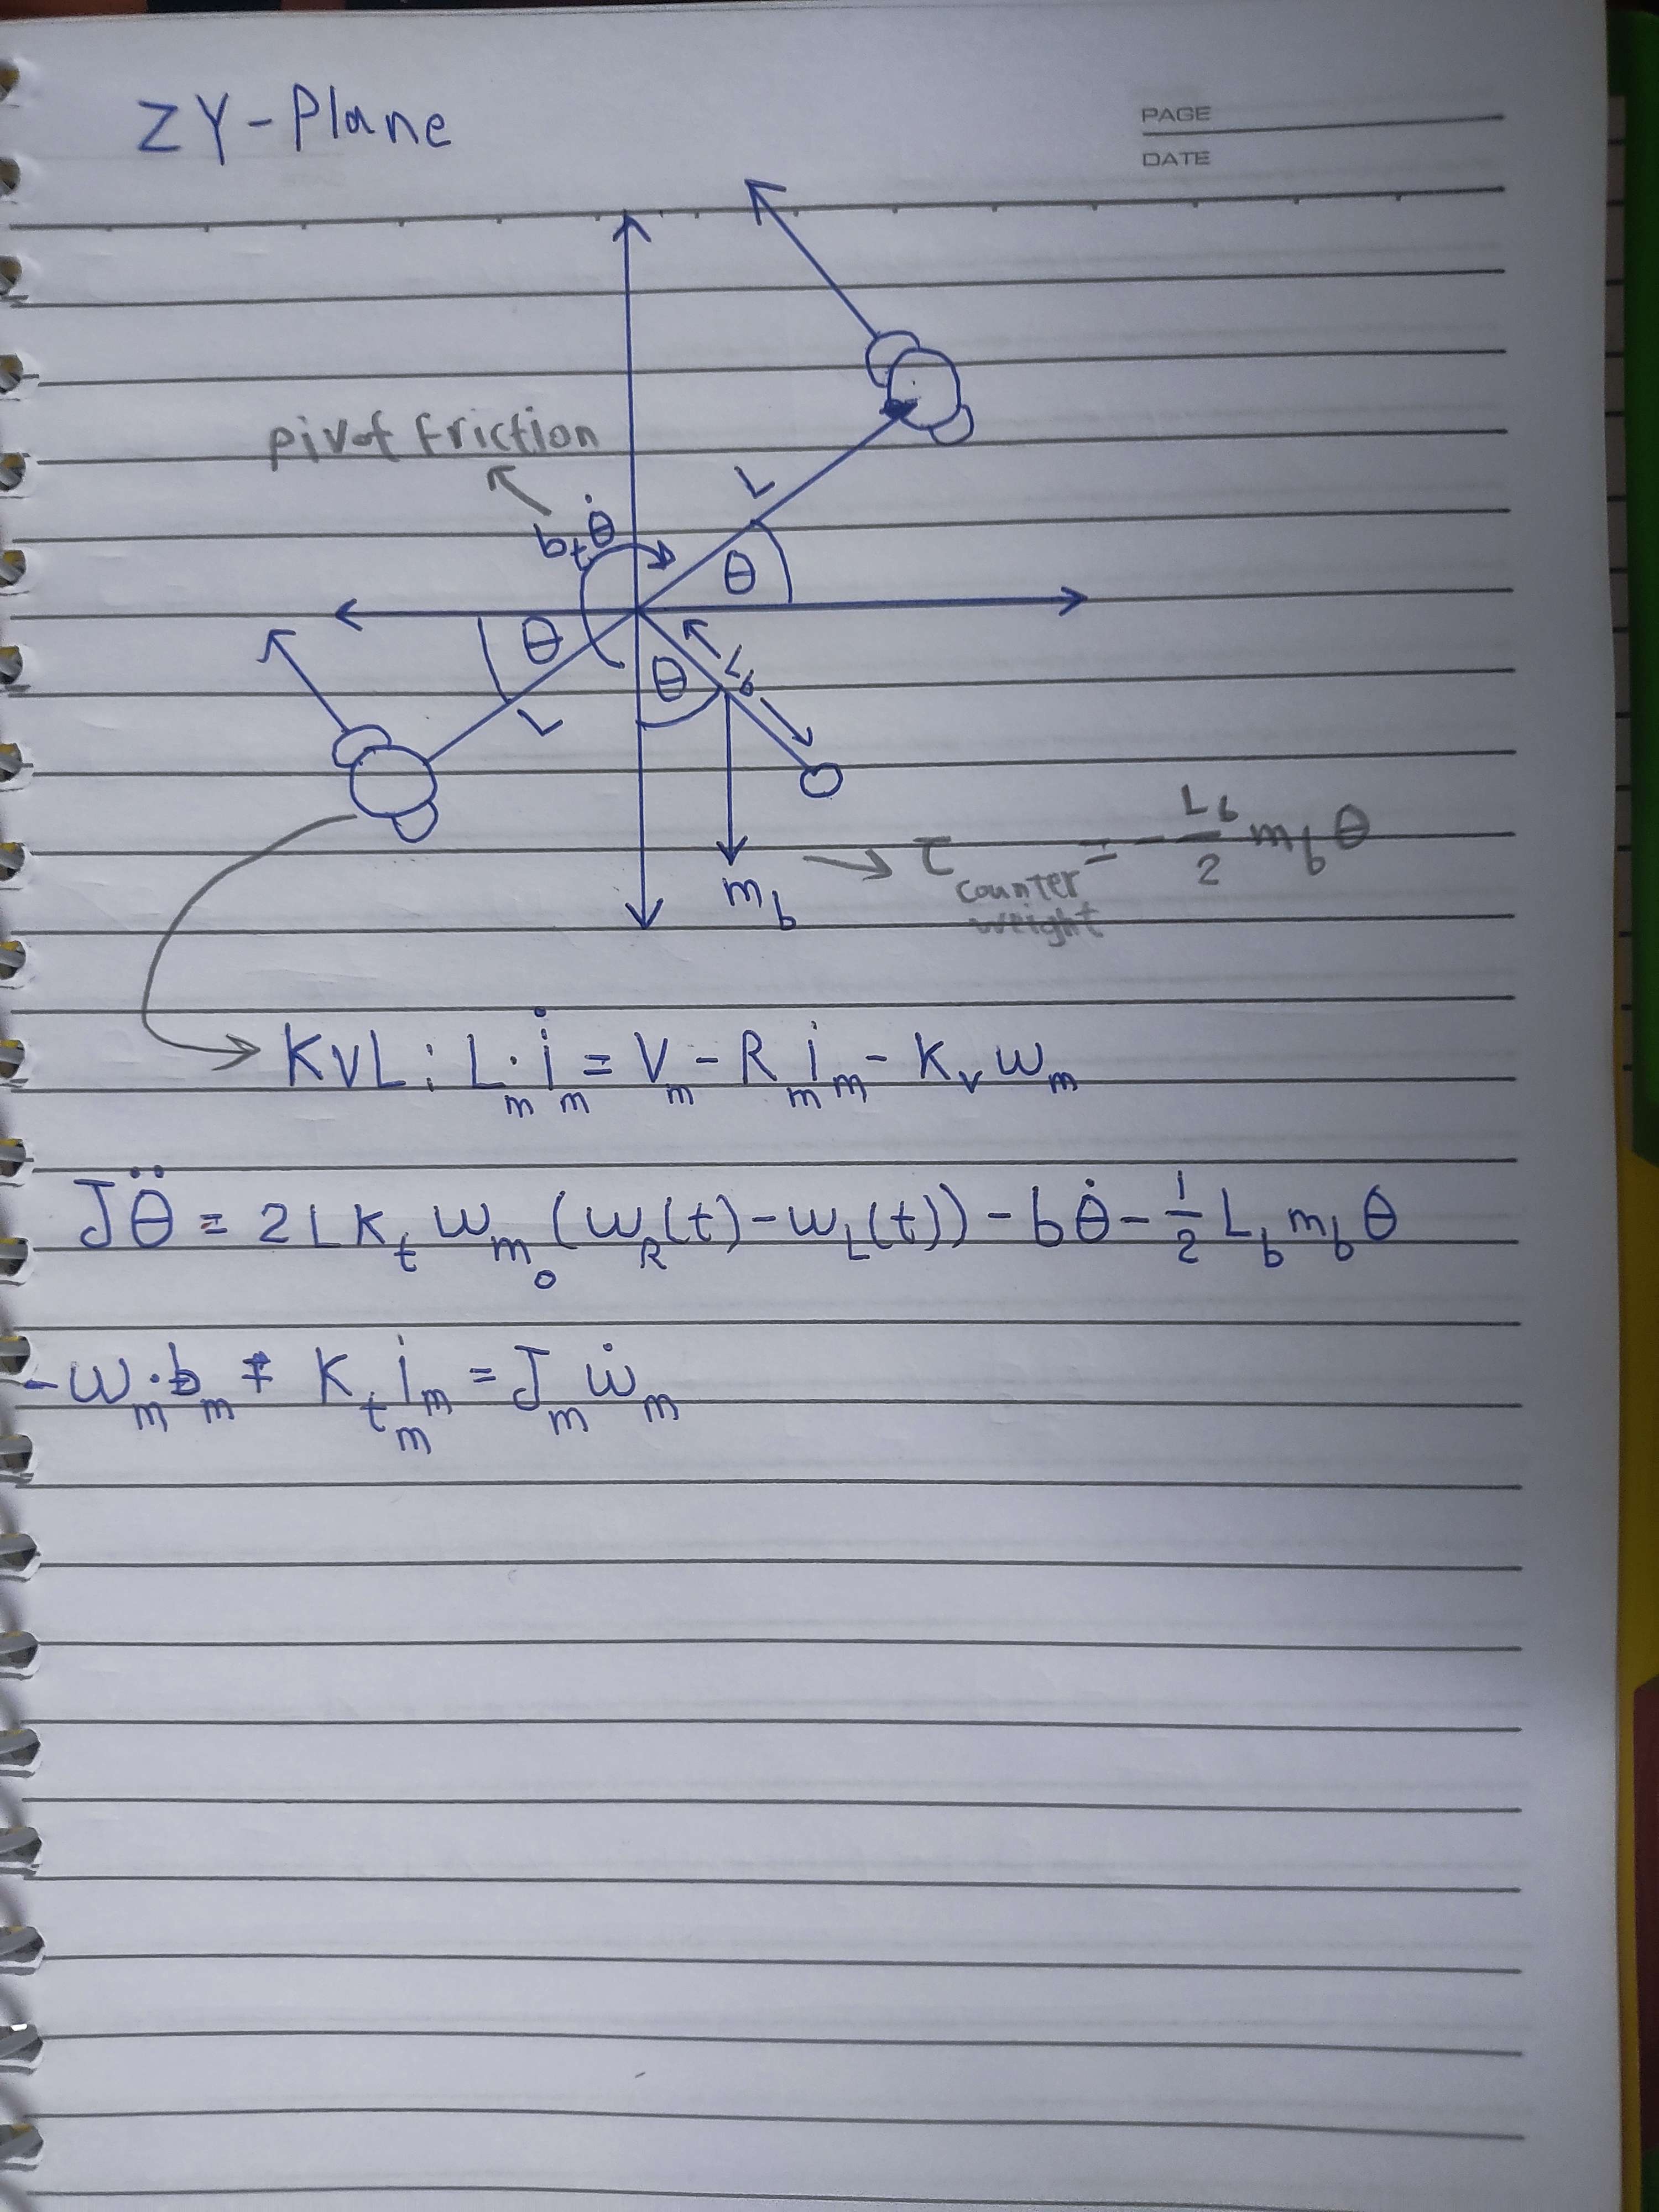 ZY-Plane
PAGE
DATE
pivot friction
b_t θ̇
L
θ
θ
θ
L_b
L
m_b
τ_counter weight = - L_b/2 m_b θ
KVL: L_m · i̇_m = V_m - R_m i_m - K_v ω_m
Jθ̈ = 2 L K_t ω_m₀ (ω_R(t) - ω_L(t)) - bθ̇ - 1/2 L_b m_b θ
- ω_m · b_m + K_t_m i_m = J_m ω̇_m